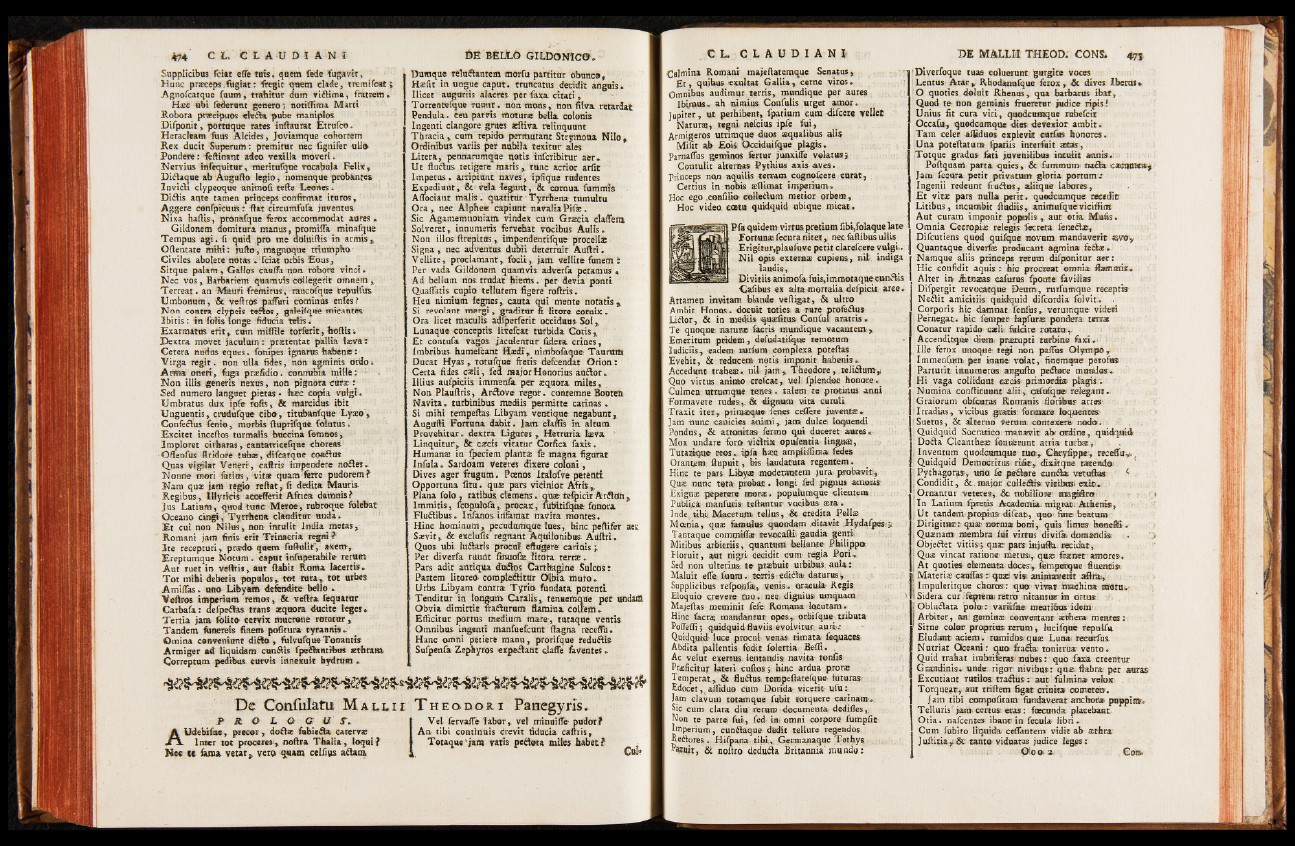 474 CL. CLAUDIANI
Supplicibus sciat esse tuis. quem sede fugavit,
Hunc præceps fugiat: fregit quem clade, tremiscat;
Agnoscatque suum, trahitur dum victima, fratrem.
Hæc ubi sederunt genero; notissima Marti
Robora præcipuos electa pube maniplos
Disponit, portuque rates instaurat Etrusco.
Heracleam suus Alcides, Joviamque cohortem
Rex ducit Superum: premitur nec signifer ullo
Pondere: festinant adeo vexilla moveri.
Nervius insequitur, meritusque vocabula Felix,
Dictaque ab Augusto legio, nomenque probantes
Invicti clypeoque animosi teste Leones.
Dictis ante tamen princeps confirmat ituros,
Aggere conspicuus: stat circumfusa juventus
Nixa hastis, pronasque ferox accommodat aures.
Gildonem domitura manus, promissa minasque
Tempus agi. si quid pro me doluistis in armis,
Ostentate mihi: justo, magnoque triumpho
Civiles abolete notas. sciat orbis Eous,
Sitque palam, Gallos caussa non robore vinci.
Nec vos, Barbariem quamvis collegerit omnem,
Terreat. an Mauri fremitus, raucosque repulsus
Umbonum, & vestros passuri cominus enses?
Non contra clypeis tectos, galeisque micantes
Ibitis: in solis longe fiducia telis.
Exarmatus erit, cum missile torserit, hostis.
Dextra movet jaculum: prætentat pallia læva:
Cetera nudus eques. sonipes ignarus habenæ:
Virga regit. non ulla fides, non agminis ordo.
Arma oneri, fuga præsidio. connubia mille:
Non illis generis nexus, non pignora curæ:
Sed numero languet pietas. hæc copia vulgi.
Umbratus dux ipse rosis, & marcidus ibit
Unguentis, crudusque cibo, titubansque Lyæo,
Confectus senio, morbis stuprisque solutus.
Excitet incestos turmalis buccina somnos,
Imploret citharas, cantatricesque choreas
Offensus stridore tubæ, discatque coactus
Quas vigilat Veneri, castris impendere noctes.
Nonne mori satius, vitæ quam ferre pudorem?
Nam quæ jam regio restat, si dedita Mauris
Regibus, Illyricis accesserit Africa damnis?
Jus Latium, quod tunc Meroe, rubroque solebat
Oceano cingi, Tyrrhena clauditur unda.
Et cui non Nilus, non intulit India metas,
Romani jam finis erit Trinacria regni?
Ite recepturi, prædo quem sustulit, axem,
Ereptumque Notum. caput insuperabile rerum
Aut ruet in vestris, aut stabit Roma lacertis.
Tot mihi debetis populos, tot rura, tot urbes
Amissas. uno Libyam defendite bello.
Vestros imperium remos, & vestra sequatur
Carbasa: despectas trans æquora ducite leges.
Tertia jam solito cervix mucrone rotetur,
Tandem funereis finem positura tyrannis.
Omina conveniunt dicto, fulvusque Tonantis
Armiger ad liquidam cunctis spectantibus æthram
Correptum pedibus curvis innexuit hydrum.
DE BELLO GILDONICO.
Dumque reluctantem morsu partitur obunco,
Hæsit in ungue caput. truncatus decidit anguis.
Ilicet auguriis alacres per saxa citati,
Torrentesque ruunt. non mons, non silva retardat
Pendula. ceu parvis moturæ bella colonis
Ingenti clangore grues æstiva relinquunt
Thracia, cum tepido permutant Strymona Nilo,
Ordinibus variis per nubila texitur ales
Litera, pennarumque notis inscribitur aer.
Ut fluctus tetigere maris, tunc acrior arsit
Impetus. artipiunt naves, ipsique rudentes
Expediunt, & vela legunt, & cornua summis
Associant malis. quatitur Tyrrhena tumultu
Ora, nec Alpheæ capiunt navalia Pisæ.
Sic Agamemnoniam vindex cum Græcia classem
Solveret, innumeris fervebat vocibus Aulis.
Non illos strepitus, impendentisque procellæ
Signa, nec adventus dubii deterruit Austri.
Vellite, proclamant, socii, jam vellite funem:
Per vada Gildonem quamvis adversa petamus.
Ad bellum nos trudat hiems. per devia ponti
Quassatis cupio tellurem figere rostris.
Heu nimium segnes, cauta qui mente notatis,
Si revolant mergi, graditur si litore cornix.
Ora licet maculis adsperserit occiduus Sol,
Lunaque conceptis livescat turbida Coris,
Et contusa vagos jaculentur sidera crines,
Imbribus humescant Hædi, nimbosaque Taurum
Ducat Hyas, totusque fretis descendat Orion:
Certa fides cæli, sed major Honorius auctor.
Illius auspiciis immensa per æquora miles,
Non Plaustris, Arctove regor. contemne Booten
Navita. turbinibus mediis permitte carinas.
Si mihi tempestas Libyam ventique negabunt,
Augusti Fortuna dabit. Jam classis in altum
Provehitur. dextra Ligures, Hetruria læva
Linquitur, & cæcis vitatur Corsica saxis.
Humanæ in speciem plantæ se magna figurat
Insula. Sardoam veteres dixere coloni,
Dives ager frugum. Pœnos Italosve petenti
Opportuna situ. quæ pars vicinior Afris,
Plana solo, ratibus clemens. quæ respicit Arcton,
Immitis, scopulosa, procax, subitisque sonora
Fluctibus. Insanos infamat navita montes.
Hinc hominum, pecudumque lues, hinc pestifer aer
Sævit, & exclusis regnant Aquilonibus Austri.
Quos ubi luctatis procul effugere carinis;
Per diversa ruunt sinuosæ litora terræ.
Pars adit antiqua ductos Carthagine Sulcos:
Partem litoreo complectitur Olbia muro.
Urbs Libyam contra Tyrio fundata potenti
Tenditur in longum Caralis, tenuemque per undam
Obvia dimittit fracturum flamina collem.
Efficitur portus medium mare, tutaque ventis
Omnibus ingenti mansuescunt stagna recessu.
Hanc omni petiere manu, prorisque reductis
Suspensa Zephyros expectant classe faventes.
De Consulatu MALLII THEODORI Panegyris.
PROLOGUS.
AUdebisne, precor, doctæ subjecta catervæ
Inter tot proceres, nostra Thalia, loqui?
Nec te fama vetat, vero quam celsius actam
Vel servasse labor, vel minuisse pudor?
An tibi continuis crevit fiducia castris,
Totaque jam vatis pectora miles habet?
Cul-
CL. CLAUDIANI
Culmina Romani majestatemque Senatus,
Et, quibus exultat Gallia, cerne viros.
Omnibus audimur terris, mundique per aures
Ibimus. ah nimius Consulis urget amor.
Jupiter, ut perhibent, spatium cum discere vellet
Naturæ, regni nescius ipse sui,
Armigeros utrimque duos æqualibus alis
Misit ab Eois Occiduisque plagis.
Parnassus geminos fertur junxisse volatus;
Contulit alternas Pythius axis aves.
Princeps non aquilis terram cognoscere curat,
Certius in nobis æstimat imperium.
Hoc ego consilio collectum metior orbem,
Hoc video cœtu quidquid ubique micat.
IPsa quidem virtus pretium sibi, solaque late
Fortunæ secura niter, nec fastibus ullis
Erigitur, plausuve petit clarescere vulgi.
Nil opis externæ cupiens, nil indiga
laudis,
Divitiis animosa suis, immotaque cunctis
Casibus ex alta mortalia despicit arce.
Attamen invitam blande vestigat, & ultro
Ambit Honos. docuit toties a rure profectus
Lictor, & in mediis quæsitus Consul aratris.
Te quoque naturæ sacris mundique vacantem,
Emeritum pridem, desudatisque remotum
Iudiciis, eadem rursum complexa potestas
Evehit, & reducem notis imponit habenis.
Accedunt trabeæ. nil jam, Theodore, relictum,
Quo virtus animo crescat, vel splendor honore.
Culmen utrumque tenes. talem te protinus anni
Formavere rudes, & dignum vita curuli
Traxit iter, primæque senes cessere juventæ.
Jam tunc canicies animi, jam dulce loquendi
Pondus, & attonitas sermo qui duceret aures.
Mox undare foro victrix opulentia linguæ,
Tutarique reos. ipsa hæc amplissima sedes
Orantem stupuit, bis laudatura regentem.
Hinc te pars Libyæ moderantem jura probavit,
Quæ nunc tota probat. longi sed pignus amoris
Exiguæ peperere moræ. populumque clientem
Publica mansuris testantur vocibus æra.
Inde tibi Macetum tellus, & credita Pellæ
Mœnia, quæ famulus quondam ditavit Hydaspes;
Tantaque commissæ revocasti gaudia genti
Mitibus arbitriis, quantum bellante Philippo
Floruit, aut nigri cecidit cum regia Pori.
Sed non ulterius te præbuit urbibus aula:
Maluit esse suum. terris edicta daturus,
Supplicibus responsa, venis. oracula Regis
Eloquio crevere tuo. nec dignius umquam
Majestas meminit sese Romana locutam.
Hinc sacræ mandantur opes, orbisque tributa
Possessi; quidquid fluviis evolvitur auri:
Quidquid luce procul venas rimata sequaces
Abdita pallentis fodit solertia Bessi.
Ac velut exertus lentandis navita tonsis
Præficitur lateri custos; hinc ardua proræ
Temperat, & fluctus tempestatesque futuras
Edocet, assiduo cum Dorida vicerit usu:
Jam clavum totamque subit torquere carinam:
Sic cum clara diu rerum documenta dedisses,
Non te parte sui, sed in omni corpore sumpsit
Imperium, cunctaque dedit tellure regendos
Rectores. Hispana tibi, Germanaque Tethys
Paruit, & nostro deducta Britannia mundo:
DE MALLII THEOD. CONS. 475
Diversoque tuas coluerunt gurgite voces
Lentus Arar, Rhodanusque ferox, & dives Iberus.
O quoties doluit Rhenus, qua barbarus ibat,
Quod te non geminis frueretur judice ripis!
Unius fit cura viri, quodcumque rubescit
Occasu, quodcumque dies devexior ambit.
Tam celer assiduos explevit cursus honores.
Una potestatum spatiis interfuit ætas,
Totque gradus fati juvenilibus intulit annis.
Postquam parta quies, & summum nacta cacumen,
Jam secura petit privatum gloria portum:
Ingenii redeunt fructus, aliique labores,
Et vitæ pars nulla perit. quodcumque recedit
Litibus, incumbit studiis, animusque vicissim
Aut curam imponit populis, aut otia Musis.
Omnia Cecropiæ relegis secreta senectæ,
Discutiens quod quisque novum mandaverit ævo,
Quantaque diversis producant agmina sectæ.
Namque aliis princeps rerum disponitur aer:
Hic confidit aquis: hic procreat omnia flammis.
Alter in Ætnæas casurus sponte favillas
Dispergit revocatque Deum, rursumque receptis
Nectit amicitiis quidquid discordia solvit.
Corporis hic damnat sensus, verumque videri
Pernegat. hic semper lapsuræ pondera terræ
Conatur rapido cæli fulcire rotatu,
Accenditque diem prærupti turbine saxi.
Ille ferox unoque tegi non passus Olympo,
Immensum per inane volat, finemque perosus
Parturit innumeros angusto pectore mundos.
Hi vaga collidunt cæcis primordia plagis.
Numina constituunt alii, casusque relegant.
Graiorum obscuras Romanis floribus artes
Irradias, vicibus gratis formare loquentes
Suetus, & alterno verum contexere nodo.
Quidquid Socratico manavit ab ordine, quidquid
Docta Cleantheæ sonuerunt atria turbæ,
Inventum quodcumque tuo, Chrysippe, recessu,
Quidquid Democritus risit, dixitque tacendo
Pythagoras, uno se pectore cuncta vetustas
Condidit, & major collectis viribus exit.
Ornantur veteres, & nobiliore magistro
In Latium spretis Academia migrat Athenis,
Ut tandem propius discat, quo fine beatum
Dirigitur: quæ norma boni, quis limes honesti.
Quænam membra sui virtus divisa domandis
Objectet vitiis; quæ pars injusta recidat,
Quæ vincat ratione metus, quæ frænet amores.
At quoties elementa doces, semperque fluentis
Materiæ caussas: quæ vis animaverit astra,
Impuleritque choros: quo vivat machina motu:
Sidera cur septem retro nitantur in ortus
Obluctata polo: variisne meatibus idem
Arbiter, an geminæ conventant æthera mentes:
Sitne color proprius rerum, lucisque repulsa
Eludant aciem. tumidos quæ Luna recursus
Nutriat Oceani: quo fracta tonitrua vento.
Quid trahat imbriferas nubes: quo saxa creentur
Grandinis. unde rigor nivibus: quæ flabra per auras
Excutiant rutilos tractus: aut fulmina velox
Torqueat, aut tristem figat crinita cometen.
Jam tibi compositam fundaverat anchora puppim.
Telluris jam certus eras: fœcunda placebant
Otia. nascentes ibant in secula libri.
Cum subito liquida cessantem vidit ab æthra
Justitia, & tanto viduatas judice leges:
Ooo 2 Con-